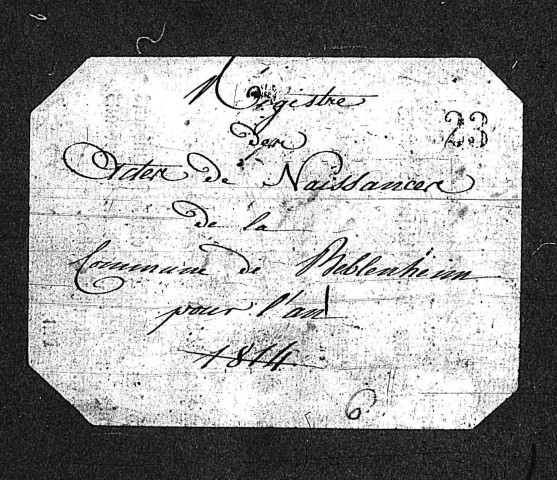 Registre
23
des
Actes de Naissances
de la
Commune de Beblenheim
pour l'an
1814
6